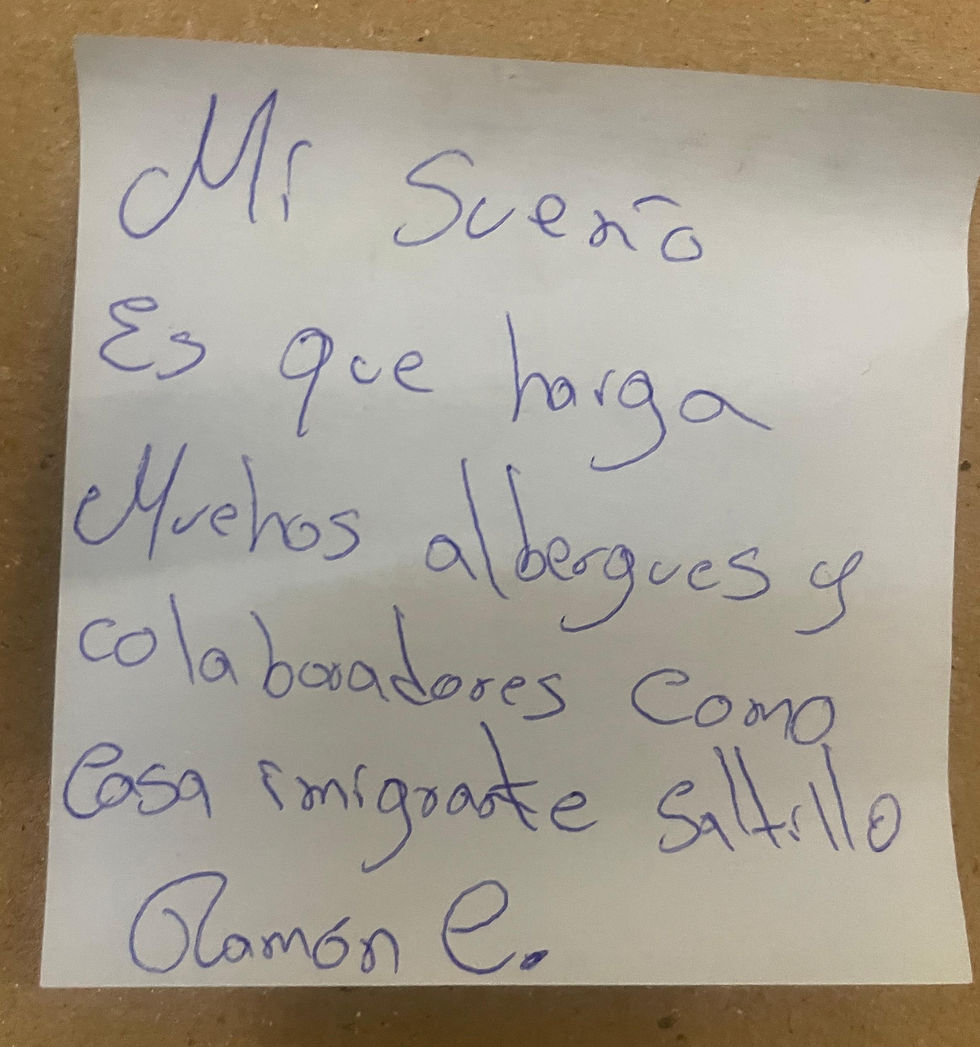 Mi Sueño
Es que harga
Muchos albergues y
colaboradores como
Casa imigrante Saltillo
Ramón C.